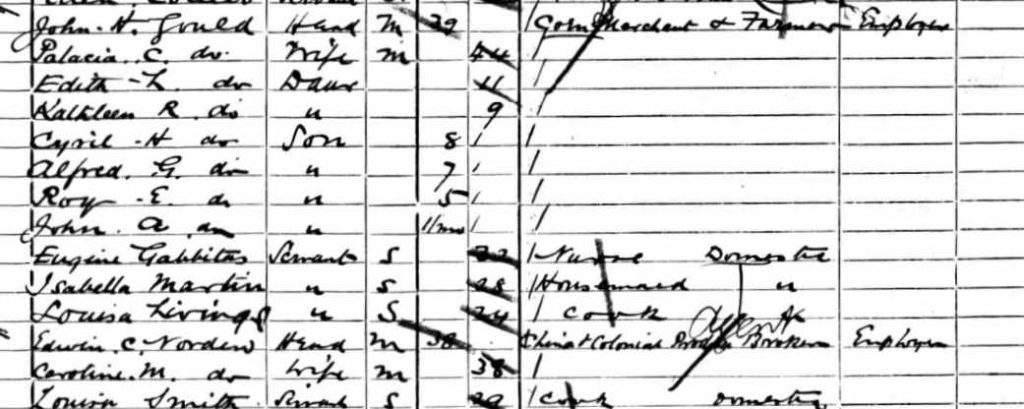 John. H. Gould Head M 39 Corn Merchant & Farmer Employer
Palacia. C. do Wife M 44
Edith - L. do Daur 11
Kathleen R. do " 9
Cyril - H do Son 8
Alfred. G. do " 7
Roy - E. do " 5
John. A do " 11/mos
Eugine Gabbitas Servant S Nurse Domestic
Isabella Martin " S 28 Housemaid "
Louisa Livings " S 24 Cook
Edwin. C. Norden Head M 38 China & Colonial Broker Agent Employer
Caroline. M. do Wife M 38
Louisa Smith Servant S Cook Domestic